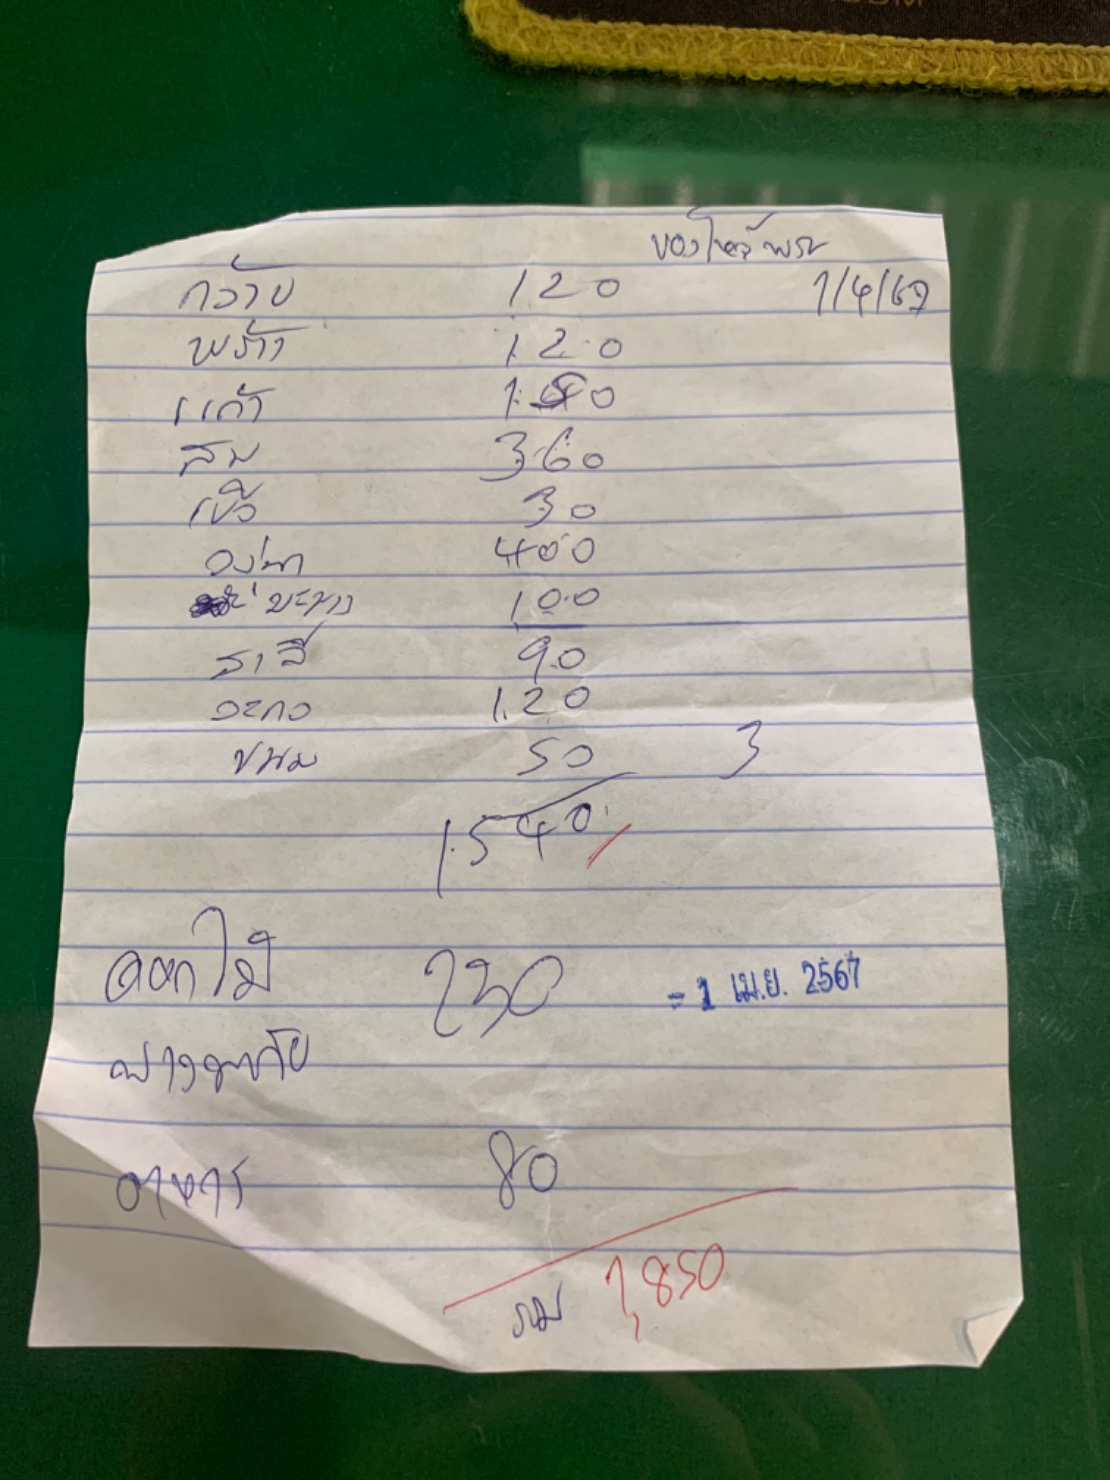 ของไหว้พระ
กล้วย 120 1/4/67
พร้าว 120
แก้ว 150
ส้ม 360
30
องุ่น 400
มะม่วง 100
สาลี่ 90
120
ขนม 50 3
1,540
ดอกไม้ 230
- 1 เม.ย. 2567
พวงมาลัย
อาหาร 80
รวม 1,850